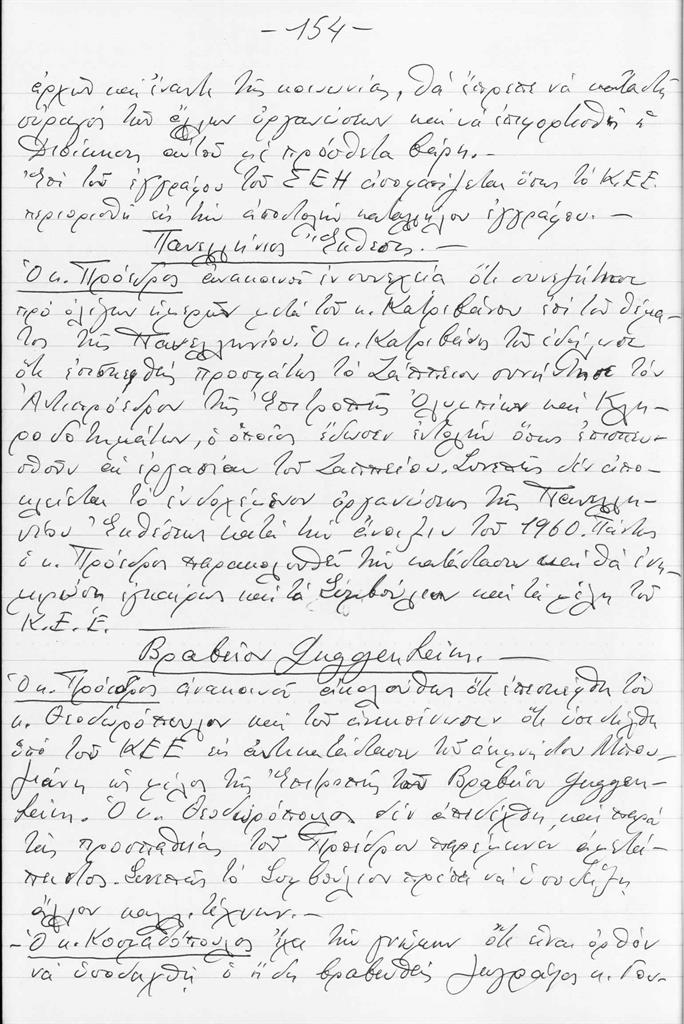 - 154 -
ἀρχῶν καὶ ἔναντι τῆς κοινωνίας, θὰ ἔπρεπε νὰ καταστῇ
οὐραγὸς τῶν ἄλλων ὀργανώσεων καὶ νὰ ἐπιφορτισθῇ ἡ
Διοίκησις αὐτοῦ μὲ πρόσθετα βάρη.-
Ἐπὶ τοῦ ἐγγράφου τοῦ ΣΕΗ ἀποφασίζεται ὅπως τὸ Κ.Ε.Ε.
περιορισθῇ εἰς τὴν ἀποστολὴν καταλλήλου ἐγγράφου. -
Πανελλήνιος Ἔκθεσις. -
Ὁ κ. Πρόεδρος ἀνακοινοῖ ἐν συνεχείᾳ ὅτι συνεζήτησε
πρὸ ὀλίγων ἡμερῶν μετὰ τοῦ κ. Κατριβάνου ἐπὶ τοῦ θέμα-
τος τῆς Πανελληνίου. Ὁ κ. Κατριβάνος τοῦ ἐδήλωσε
ὅτι ἐπισκεφθεὶς προσφάτως τὸ Ζάππειον συνήντησε τὸν
Ἀντιπρόεδρον τῆς Ἐπιτροπῆς Ὀλυμπίων καὶ Κλη-
ροδοτημάτων, ὁ ὁποῖος ἔδωσεν ἐντολὴν ὅπως ἐπισπευ-
σθοῦν αἱ ἐργασίαι τοῦ Ζαππείου. Συνεπῶς δὲν ἀπο-
κλείεται τὸ ἐνδεχόμενον ὀργανώσεως τῆς Πανελλη-
νίου Ἐκθέσεως κατὰ τὴν ἄνοιξιν τοῦ 1960. Πάντως
ὁ κ. Πρόεδρος παρακολουθεῖ τὴν κατάστασιν καὶ θὰ ἐνη-
μερώσῃ ἐγκαίρως καὶ τὸ Συμβούλιον καὶ τὰ μέλη τοῦ
Κ.Ε.Ε.
Βραβεῖον Guggenheim. -
Ὁ κ. Πρόεδρος ἀνακοινοῖ ἀκολούθως ὅτι ἐπεσκέφθη τὸν
κ. Θεοδωρόπουλον καὶ τοῦ ἀνεκοίνωσεν ὅτι ὑπεδείχθη
ὑπὸ τοῦ ΚΕΕ εἰς ἀντικατάστασιν τοῦ ἀειμνήστου Μπου-
μάνη ὡς μέλος τῆς Ἐπιτροπῆς τοῦ Βραβείου Guggen-
heim. Ὁ κ. Θεοδωρόπουλος δὲν ἀπεδέχθη, καὶ παρὰ
τὰς προσπαθείας τοῦ Προέδρου παρέμεινεν ἀμετά-
πειστος. Συνεπῶς τὸ Συμβούλιον πρέπει νὰ ὑποδείξῃ
ἄλλον καλλιτέχνην.-
- Ὁ κ. Κοσμαδόπουλος ἔχει τὴν γνώμην ὅτι εἶναι ὀρθὸν
νὰ ὑποδειχθῇ ὁ ἤδη βραβευθεὶς ζωγράφος κ. Γου-